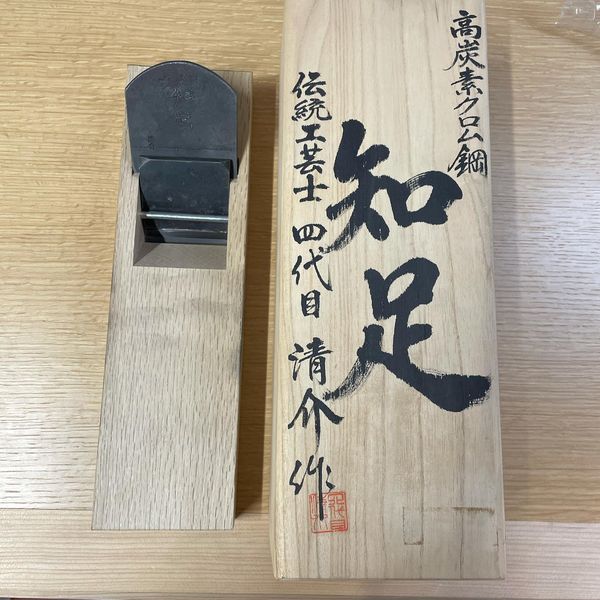 高炭素クロム鋼
知足
伝統工芸士 四代目 清介作